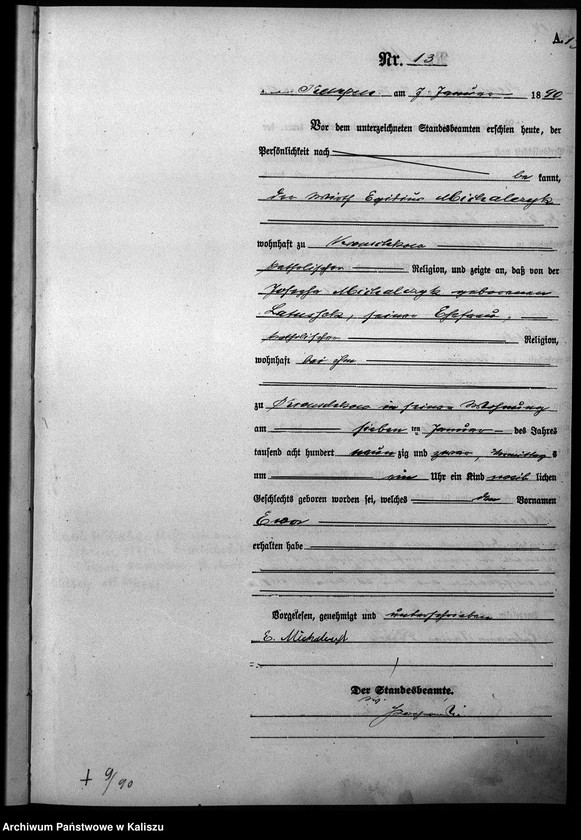 A.
Nr. 13
Kempen am 7. Januar 1890
Vor dem unterzeichneten Standesbeamten erschien heute, der
Persönlichkeit nach
be kannt,
der Wirth Egidius Michalczyk
wohnhaft zu
katholischer Religion, und zeigte an, daß von der
Josefa Michalczyk geborenen
seiner Ehefrau,
katholischer Religion,
wohnhaft bei ihm
zu in seiner Wohnung
am sieben ten Januar des Jahres
tausend acht hundert neun zig und zwar, Vormittags
um ein Uhr ein Kind weib lichen
Geschlechts geboren worden sei, welches den Vornamen
Ewa
erhalten habe
Vorgelesen, genehmigt und unterschrieben
E. Michalczyk
Der Standesbeamte.
+ 9/90
Archiwum Państwowe w Kaliszu